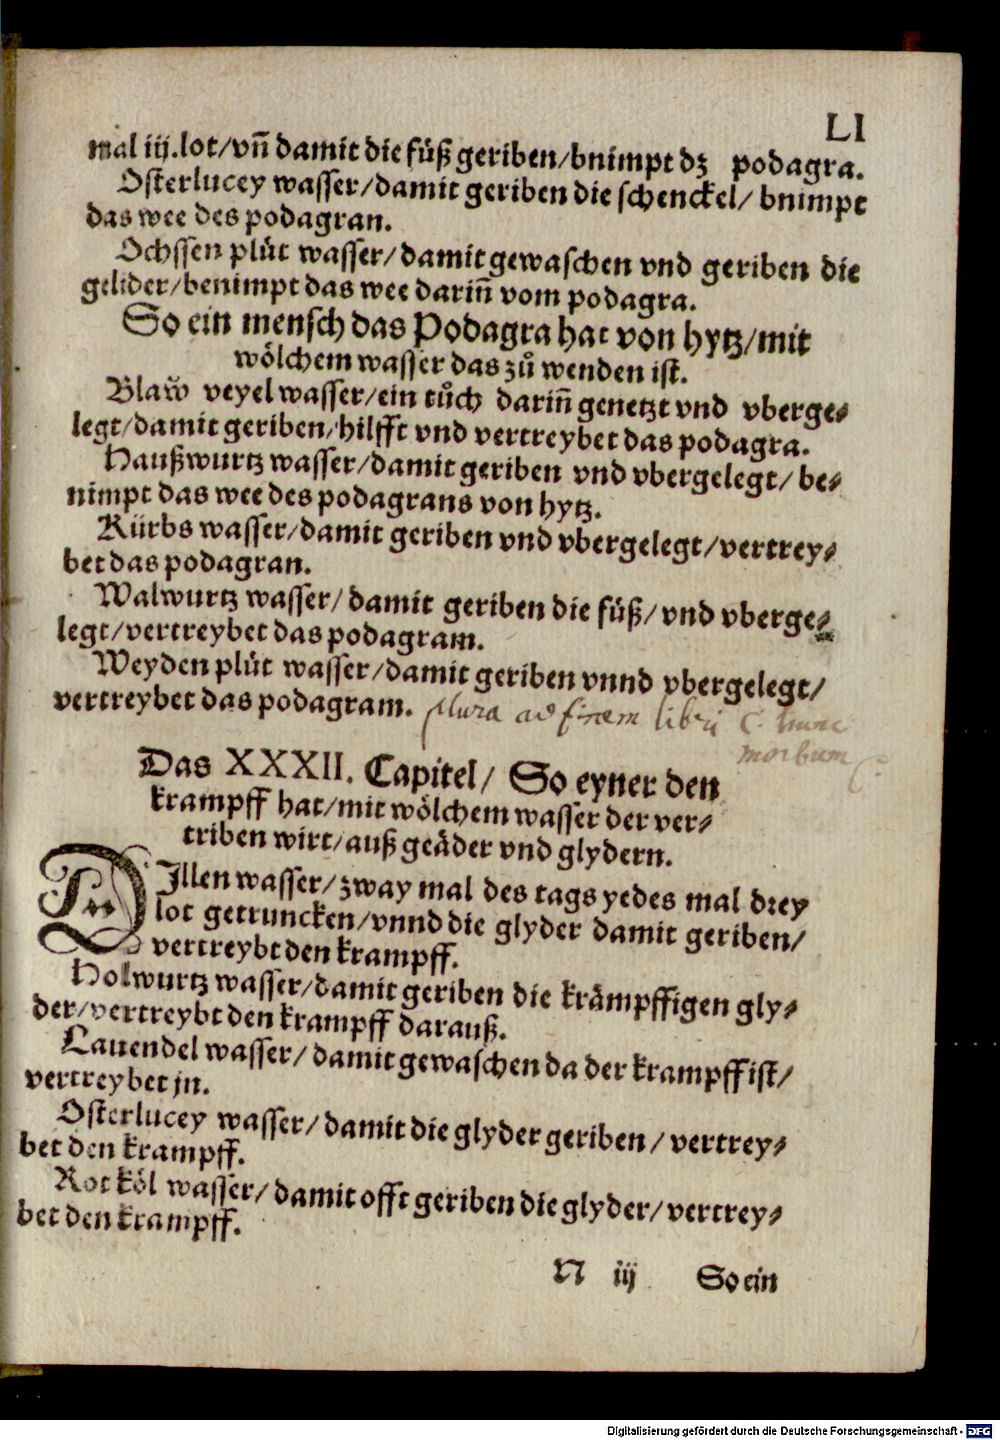 LI
mal iij.lot/vñ damit die füß geriben/bnimpt dʒ podagra.
Osterlucey wasser/damit geriben die schenckel/ bnimpt
das wee des podagran.
Ochssen plůt wasser/damit gewaschen vnd geriben die
gelider/benimpt das wee dariñ vom podagra.
So ein mensch das Podagra hat von hytz/mit
wölchem wasser das zů wenden ist.
Blaw̆ veyel wasser/ein tůch dariñ genetzt vnd vberge⸗
legt/damit geriben/hilfft vnd vertreybet das podagra.
Haußwurtz wasser/damit geriben vnd vbergelegt/ be⸗
nimpt das wee des podagrans von hytz.
Kürbs wasser/damit geriben vnd vbergelegt/vertrey⸗
bet das podagran.
Walwurtz wasser/ damit geriben die füß/vnd vberge⸗
legt/vertreybet das podagram.
Weyden plůt wasser/damit geriben vnnd vbergelegt/
vertreybet das podagram. plura ad finem libri C. hunc
morbum
Das XXXII. Capitel/ So eyner den
krampff hat/mit wölchem wasser der ver⸗
triben wirt/auß geäder vnd glydern.
DIllen wasser/zway mal des tags yedes mal drey
lot getruncken/vnnd die glyder damit geriben/
vertreybt den krampff.
Holwurtz wasser/damit geriben die krämpffigen gly⸗
der/vertreybt den krampff darauß.
Lauendel wasser/ damit gewaschen da der krampff ist/
vertreybet jn.
Osterlucey wasser/damit die glyder geriben/ vertrey⸗
bet den krampff.
Rot köl wasser/damit offt geriben die glyder/vertrey⸗
bet den krampff.
N iij So ein
Digitalisierung gefördert durch die Deutsche Forschungsgemeinschaft - DFG